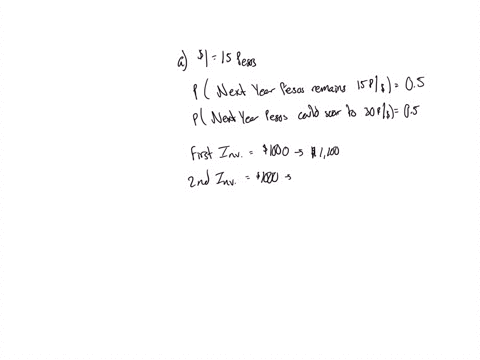 a) $1 = 15 Pesos
P( Next Year Pesos remains 15P/$) = 0.5
P( Next Year Pesos could soar to 30P/$) = 0.5
First Inv. = $1000 → $1,100
2nd Inv. = $1000 →